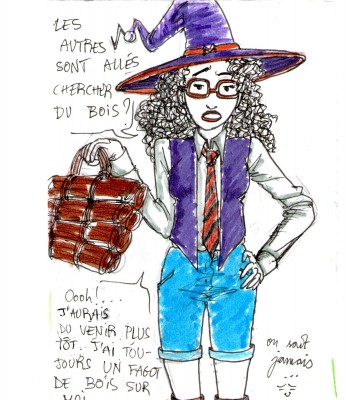 LES
AUTRES
SONT ALLÉS
CHERCHER
DU BOIS?
Oooh!...
J'AURAIS
DU VENIR PLUS
TÔT. J'AI TOU-
JOURS UN FAGOT
DE BOIS SUR
MOI
on sait
jamais
...